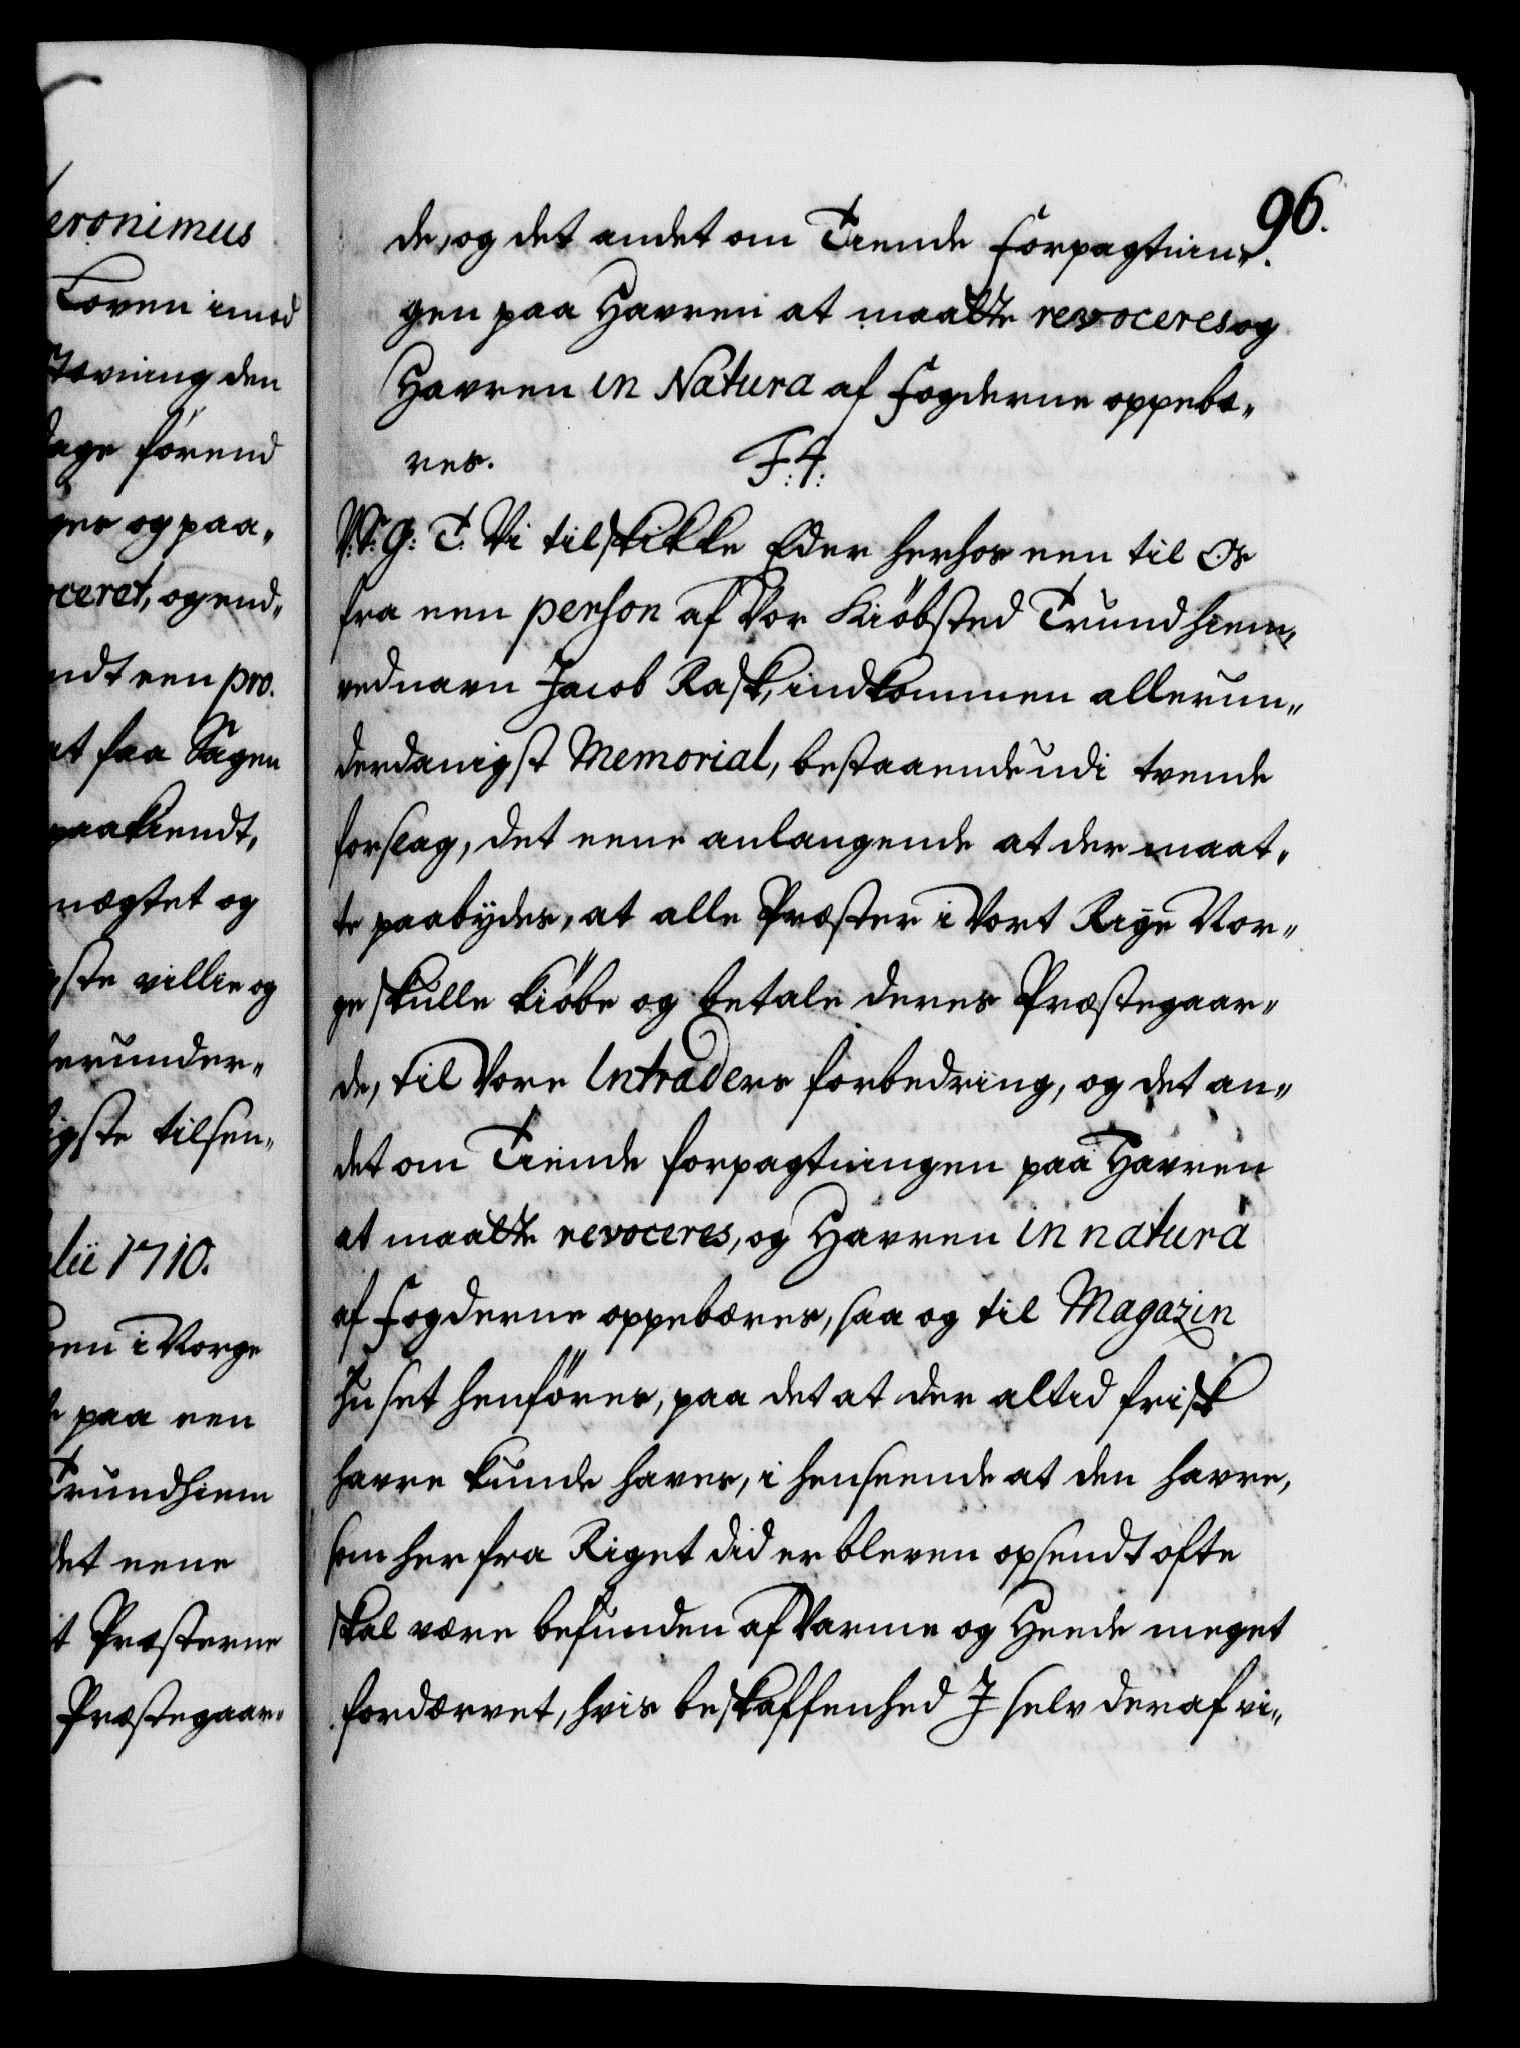 eronimus
Loven imod
Stevning den
dage förend
ges og paa-
oceret, og end-
ndt een pro.
at faa Sagen
paakiendt,
mægtet og
ste villie og
erunder-
igste tilsen-
lii 1710.
i Norge
paa een
Trundhiem
det eene
t Præsterne
Præstegaar-
96.
de, og det andet om Tiende Forpagtnin-
gen paa Havren at maatte revoceres og
Havren in Natura af Fogderne oppebæ-
res. F:4:
V: V: G: T: Vi tilskikke Eder herhos een til Os
fra een person af Vor Kiöbsted Trundhiem,
ved navn Jacob Rask, indkommen allerun-
derdanigst Memorial, bestaaende udi tvende
forslag, det eene anlangende at der maat-
te paabydes, at alle Præster i Vort Rige Nor-
ge skulle kiöbe og betale deres Præstegaar-
de, til Vore Intraders forbedring, og det an-
det om Tiende forpagtningen paa Havren
at maatte revoceres, og Havren in natura
af Fogderne oppebæres, saa og til Magazin
Huset henföres, paa det at der altid frisk
havre kunde haves, i henseende at den havre,
som her fra Riget did er bleven opsendt ofte
skal være befunden af Varme og Heede meget
fordærvet, hvis beskaffenhed I selv deraf vi-